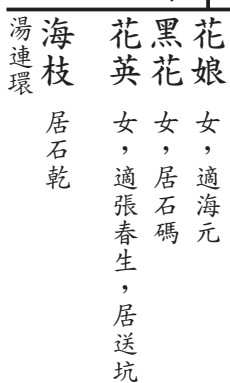 花娘 女，適海元
黑花 女，居石碼
花英 女，適張春生，居送坑
海枝 居石乾
湯連環